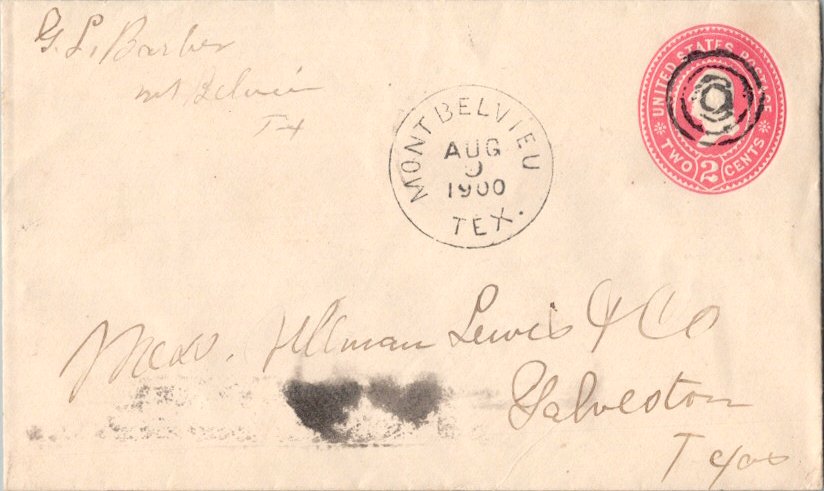 G. L. Barber
Mt Belvieu
Tx
MONT BELVIEU
AUG
9
1900
TEX.
UNITED STATES POSTAGE
TWO 2 CENTS
Mess. Ullman Lewis & Co
Galveston
Texas